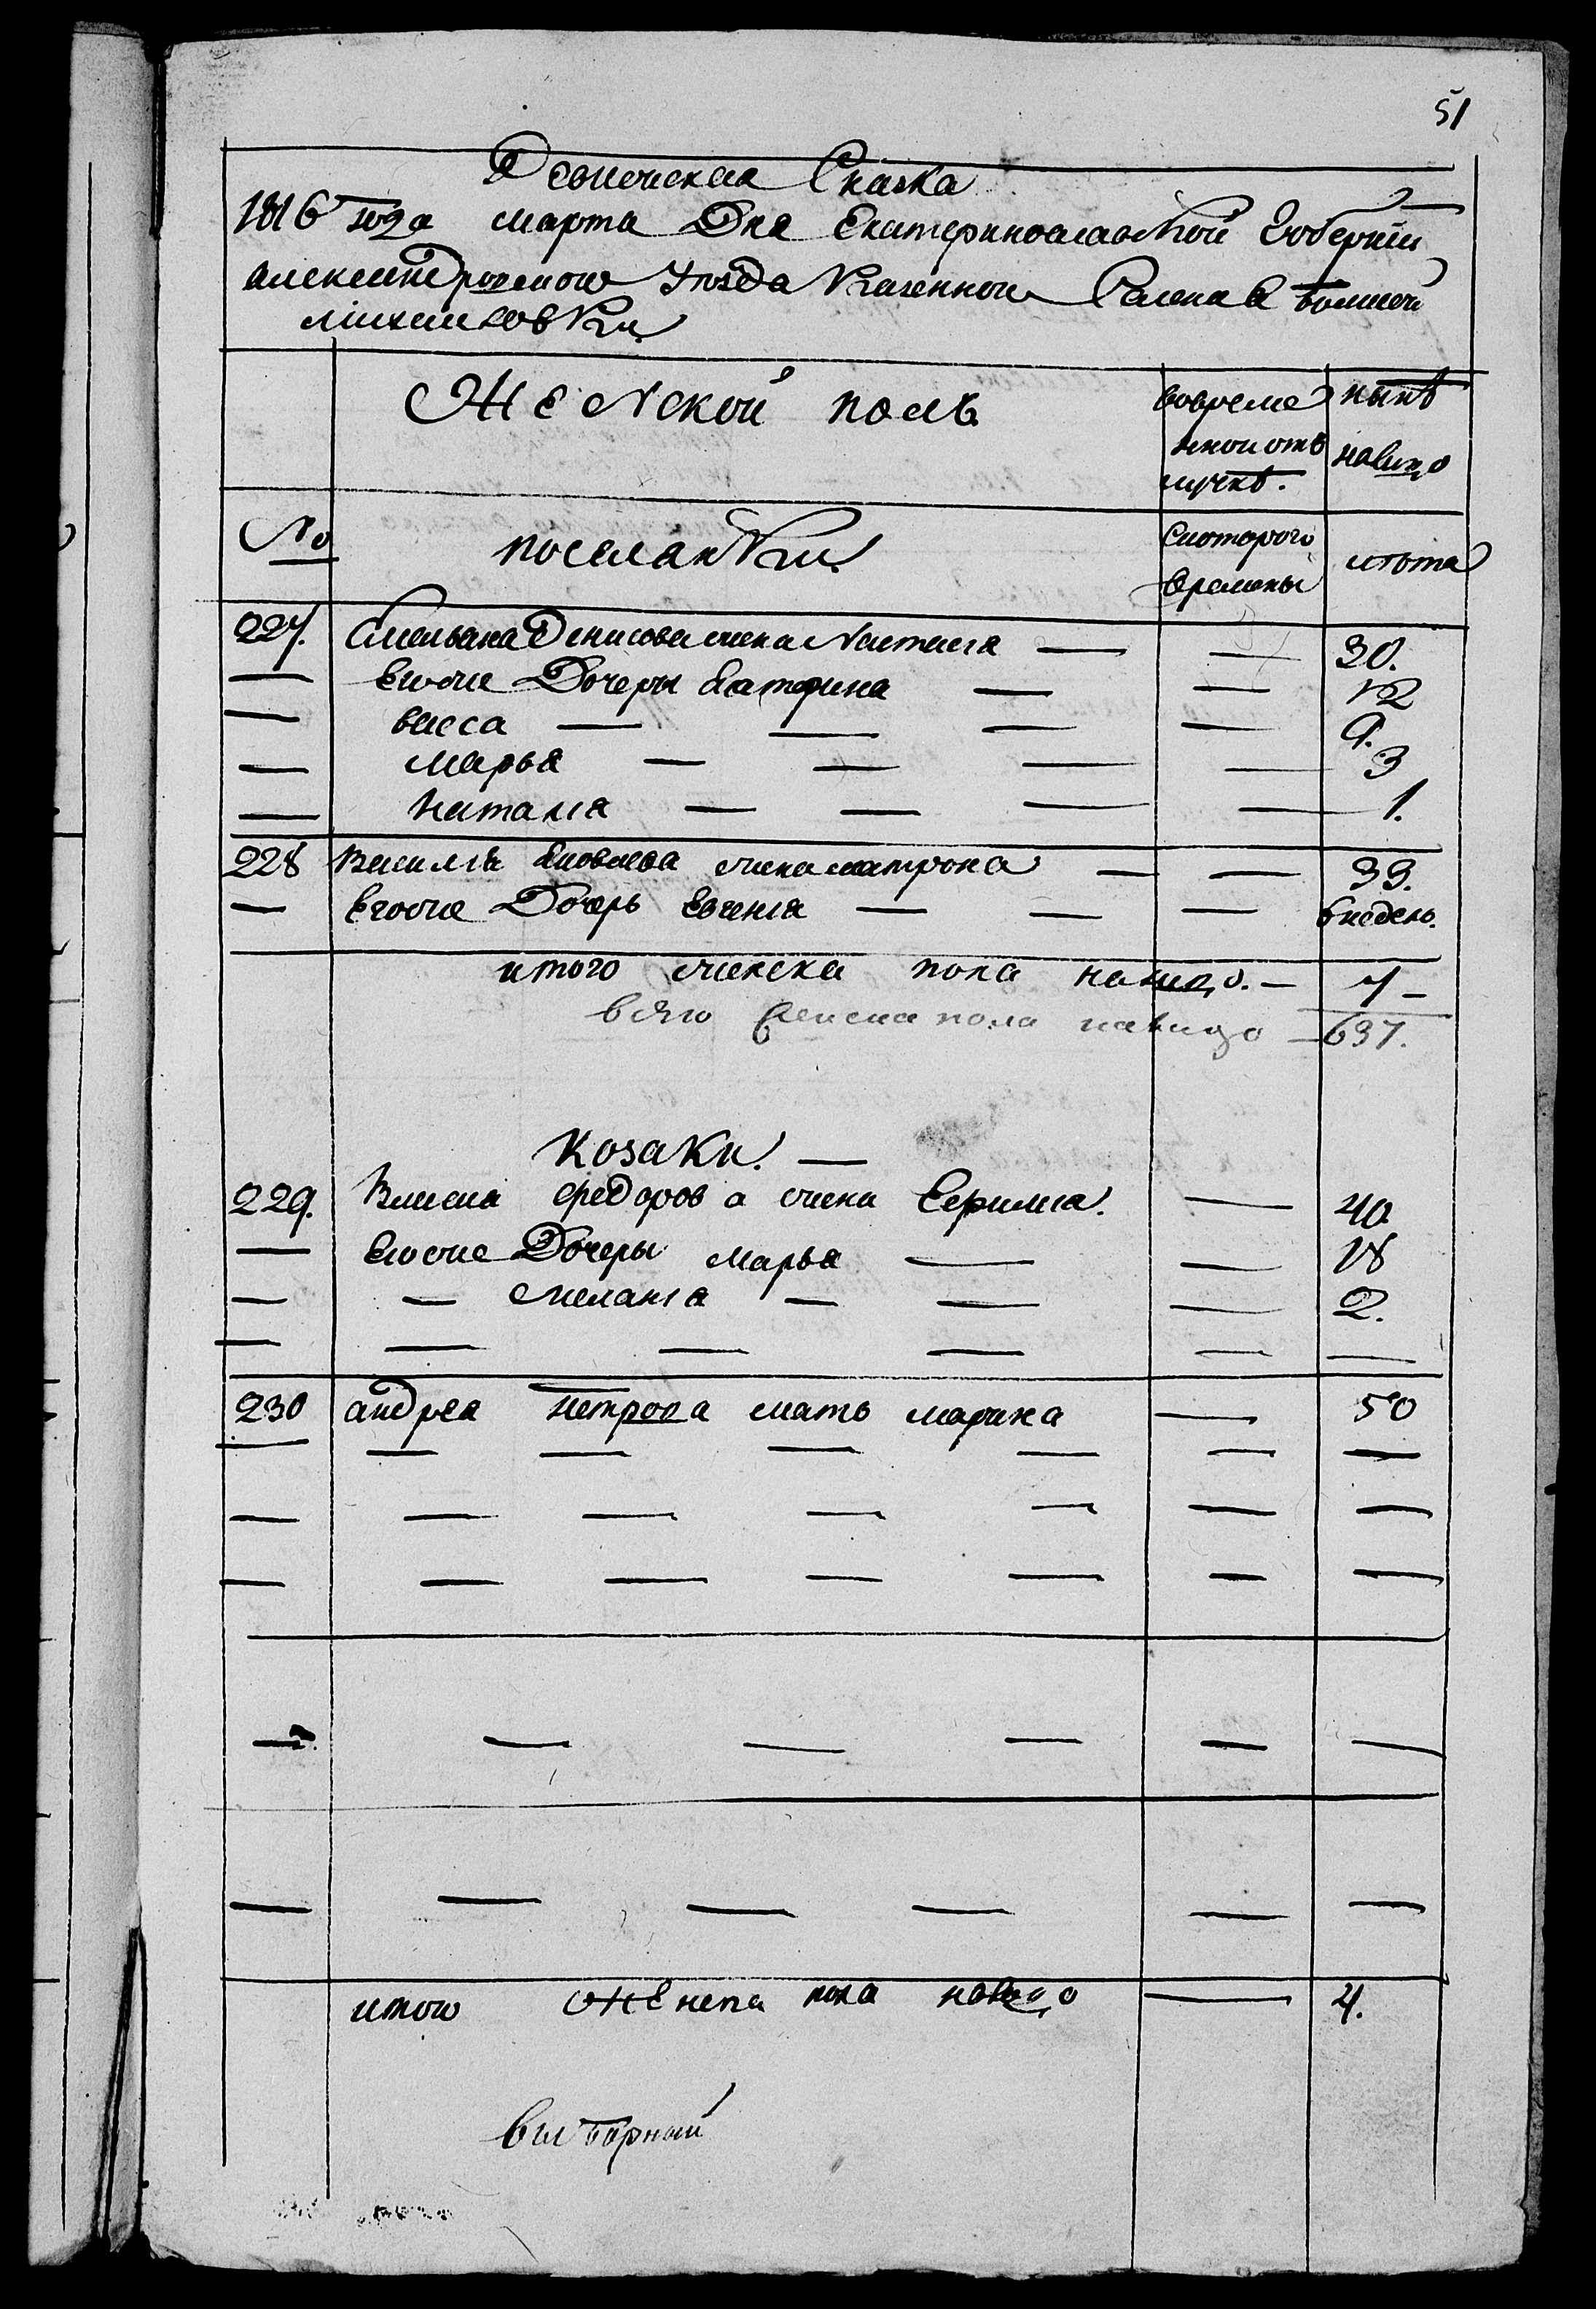 51
Ревижская Сказка
1816 года марта Дня Екатеринославской Губернии
александровского Уезда Казенного Селенiя болшой
михаиловки
Женской полъ
вовреме
нной отъ
лучкѣ.
нынѣ
налицо
No
поселянки
Скоторого
времены
лѣта
227. Емельяна Денисова жена Настасiя — — 30.
— Егоже Дочеры Катерина — — 12
— васса — — — — 9.
— Марья — — — — 3
— Наталiя — — — — 1.
228 Василiя Яковлева жена матрона — — 39.
— Егоже Дочерь Евгенiя — — — 6 недель.
итого женска пола налицо. — 7 —
всего женска пола налицо — 637.
Козаки. —
229. Власиа Федорова жена Ефимiа. — 40
— Егоже Дочеры марья — — 18
— — Меланiя — — — 2.
— — — — — —
230 андрея петрова мать марина — 50
— — — — — — —
— — — — — — —
— — — — — — —
— — — — — —
— — — — — —
итого Женска пола налицо — 4.
выборный